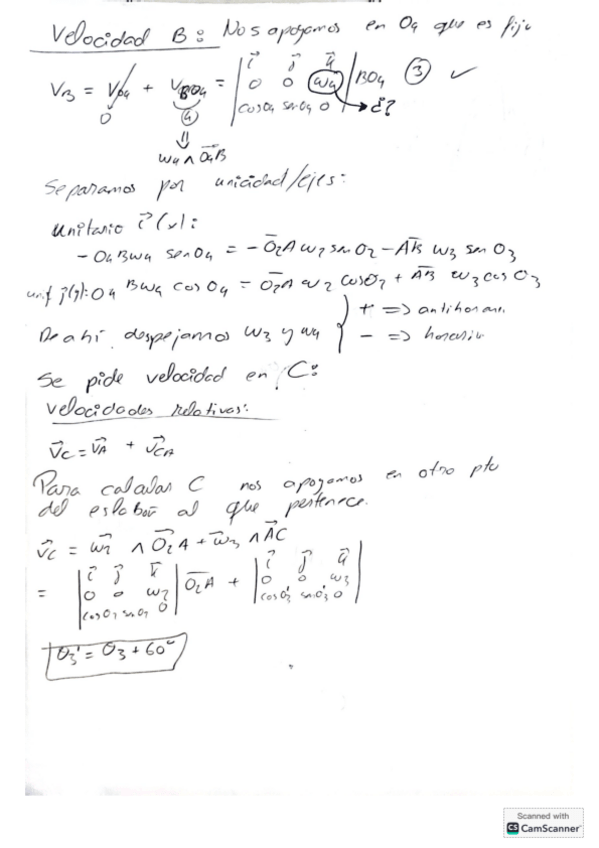 Velocidad B: Nos apoyamos en O4 que es fijo
VB = VO4 + VBO4 = | i j k 0 0 w4 cosO4 senO4 0 | BO4 ③ ✓
0 ④ ¿?
⇓
w4 ∧ O4B
Separamos por unicidad/ejes:
unitario i (x):
- O4B w4 sen O4 = - O2A w2 sen O2 - AB w3 sen O3
unit j(y): O4 B w4 cos O4 = O2A w2 cos O2 + AB w3 cos O3
De ahí despejamos w3 y w4 } + => antihorario
- => horario
Se pide velocidad en C:
Velocidades relativas:
VC = VA + VCA
Para calcular C nos apoyamos en otro pto
del eslabón al que pertenece.
VC = w2 ∧ O2A + w3 ∧ AC
= | i j k 0 0 w2 cosO2 senO2 0 | O2A + | i j k 0 0 w3 cosO3' senO3' 0 |
O3' = O3 + 60°
Scanned with
CS CamScanner